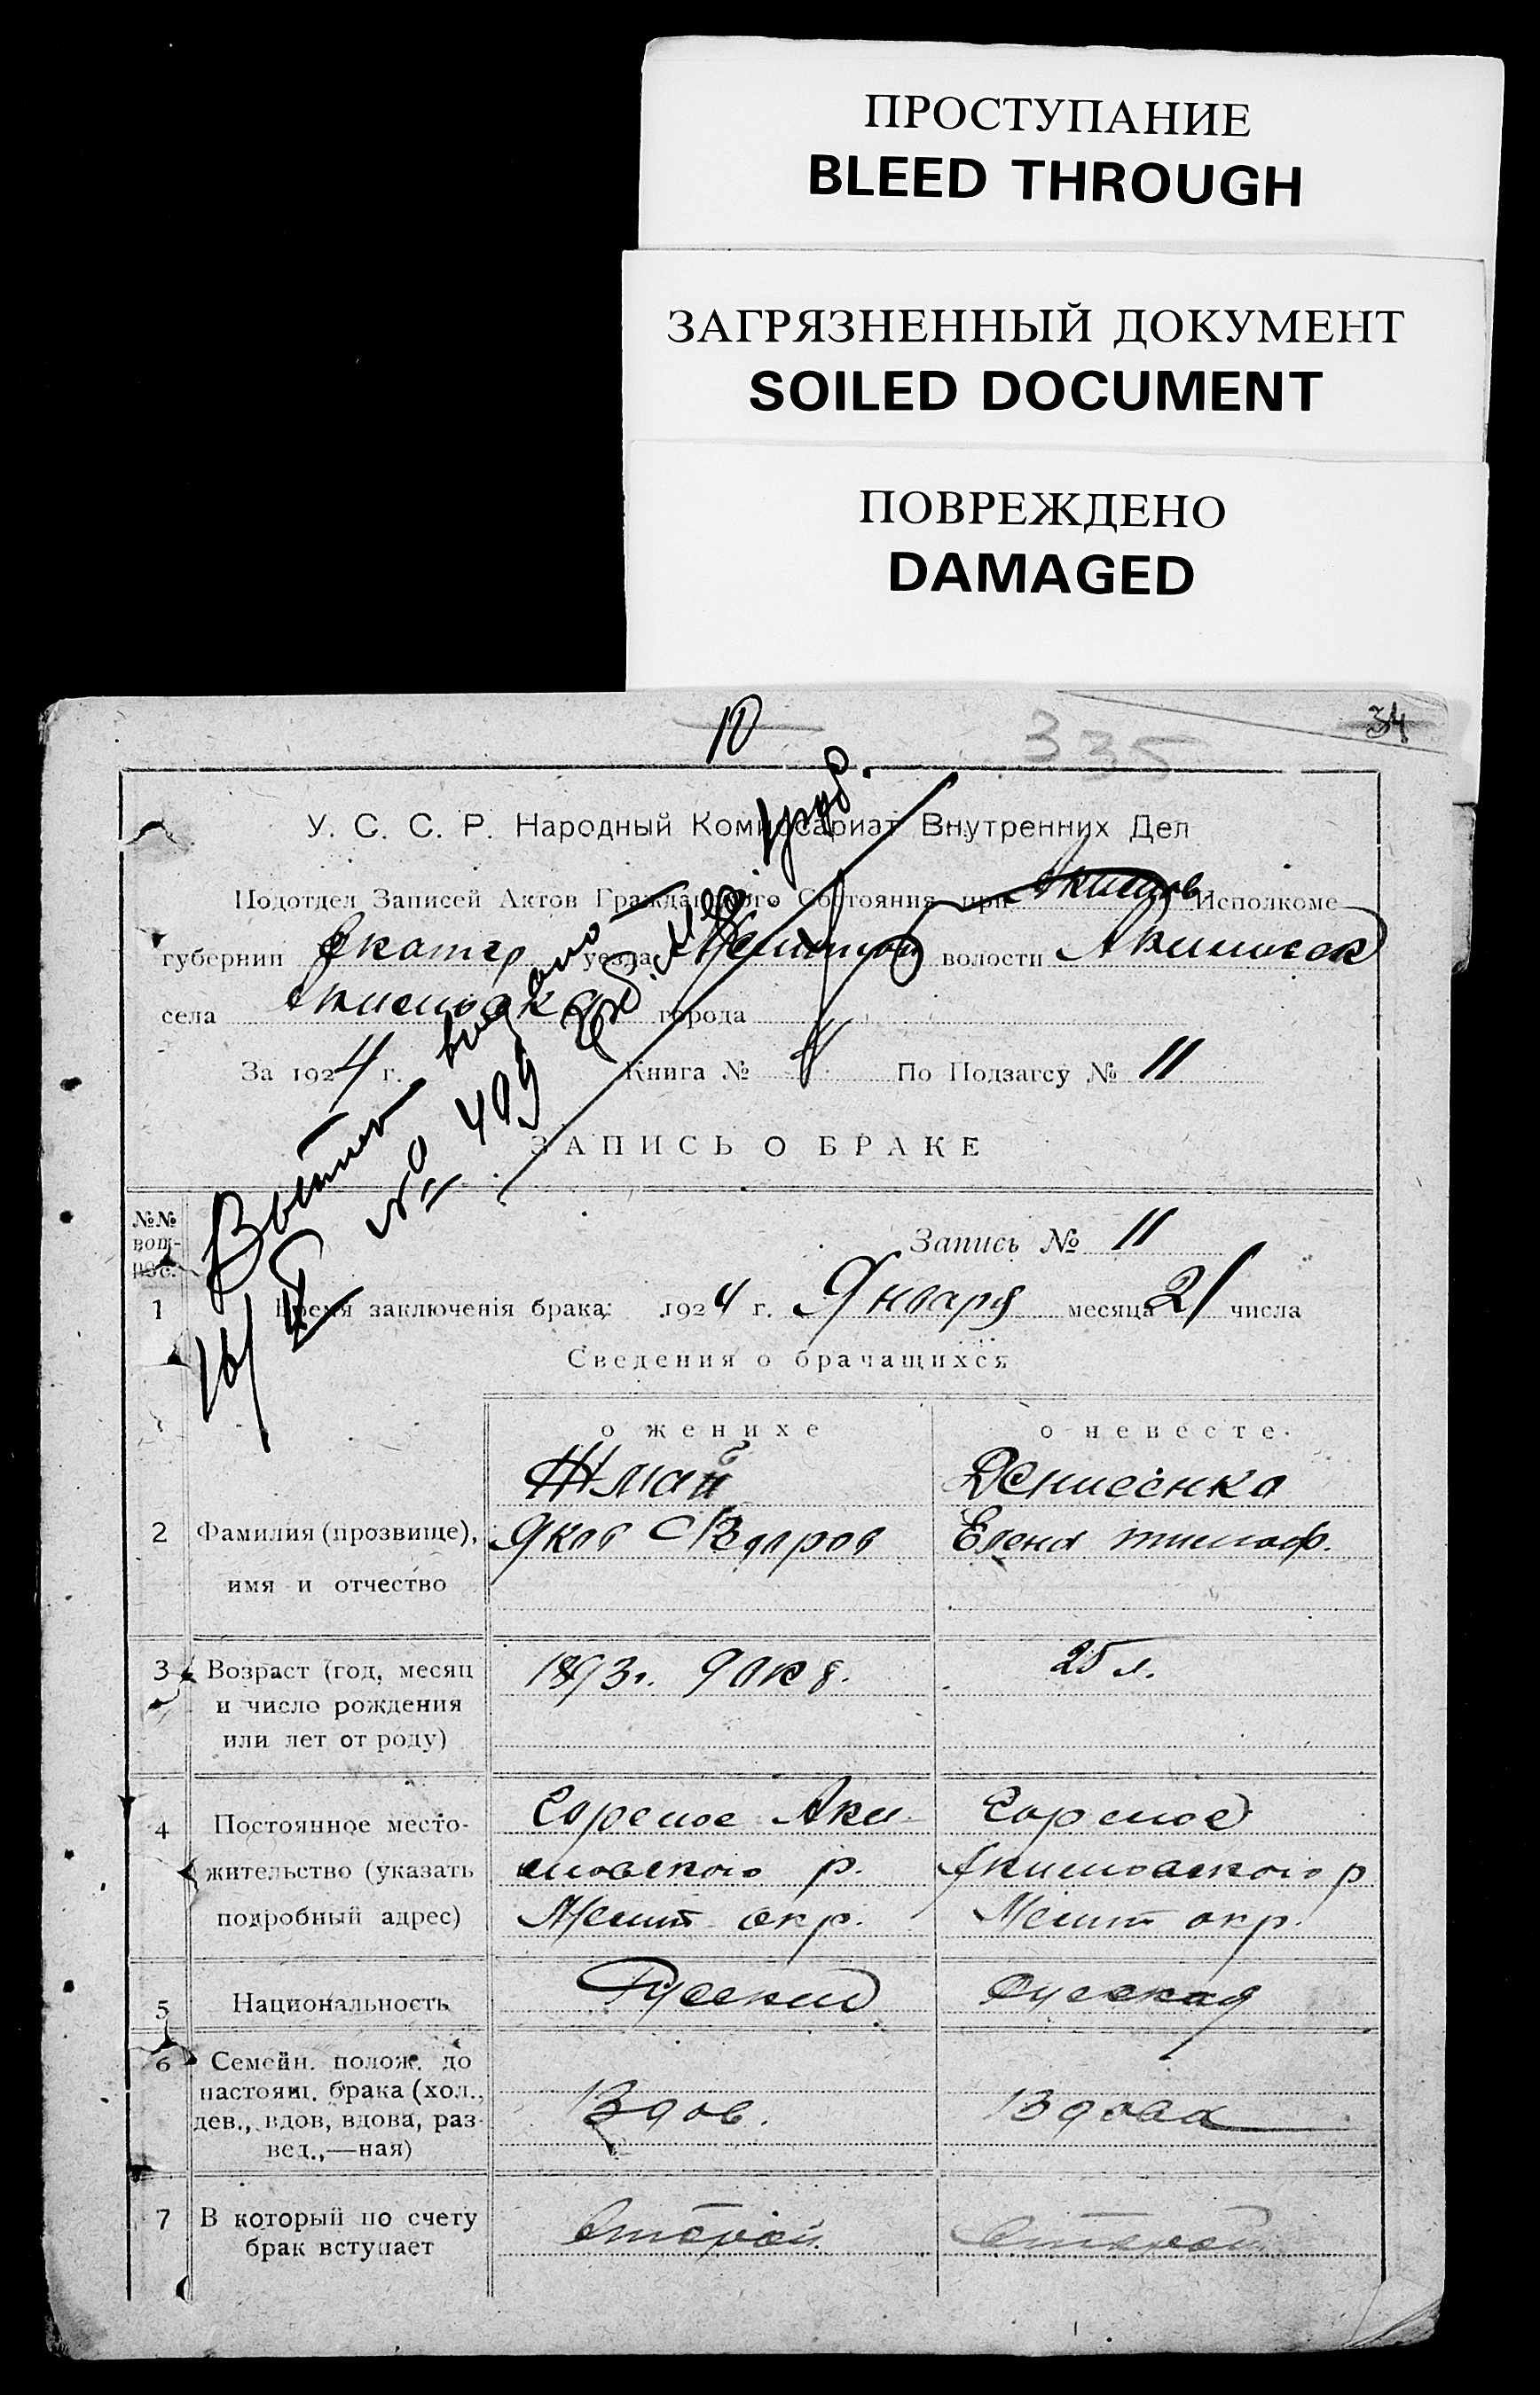 ПРОСТУПАНИЕ
BLEED THROUGH
ЗАГРЯЗНЕННЫЙ ДОКУМЕНТ
SOILED DOCUMENT
ПОВРЕЖДЕНО
DAMAGED
10
335
34
У. С. С. Р. Народный Комиссариат Внутренних Дел
Подотдел Записей Актов Гражданского Состояния при Акимов Исполкоме
губернии Екатер уезда волости Акимовск
села Акимовка города
За 1924 г. Книга № По Подзагсу № 11
№ 409
ЗАПИСЬ О БРАКЕ
№№ воп-рос.
Запись № 11
1 Время заключенія брака: 1924 г. Января месяца 21 числа
Сведения о брачащихся
о женихе о невесте.
Жмай Денисенко
2 Фамилия (прозвище), Яков Елена тимоф.
имя и отчество
3 Возраст (год, месяц 1893г. 25 л.
и число рождения
или лет от роду)
4 Постоянное место- Горемое Аки- Горемое
жительство (указать мовского р. Акимовского р
подробный адрес) Мелит окр. Мелит окр.
5 Национальность Русский Русская
6 Семейн. полож. до
настоящ. брака (хол.,
дев., вдов, вдова, раз- Вдов. Вдова
вед.,—ная)
7 В который по счету второй второй
брак вступает